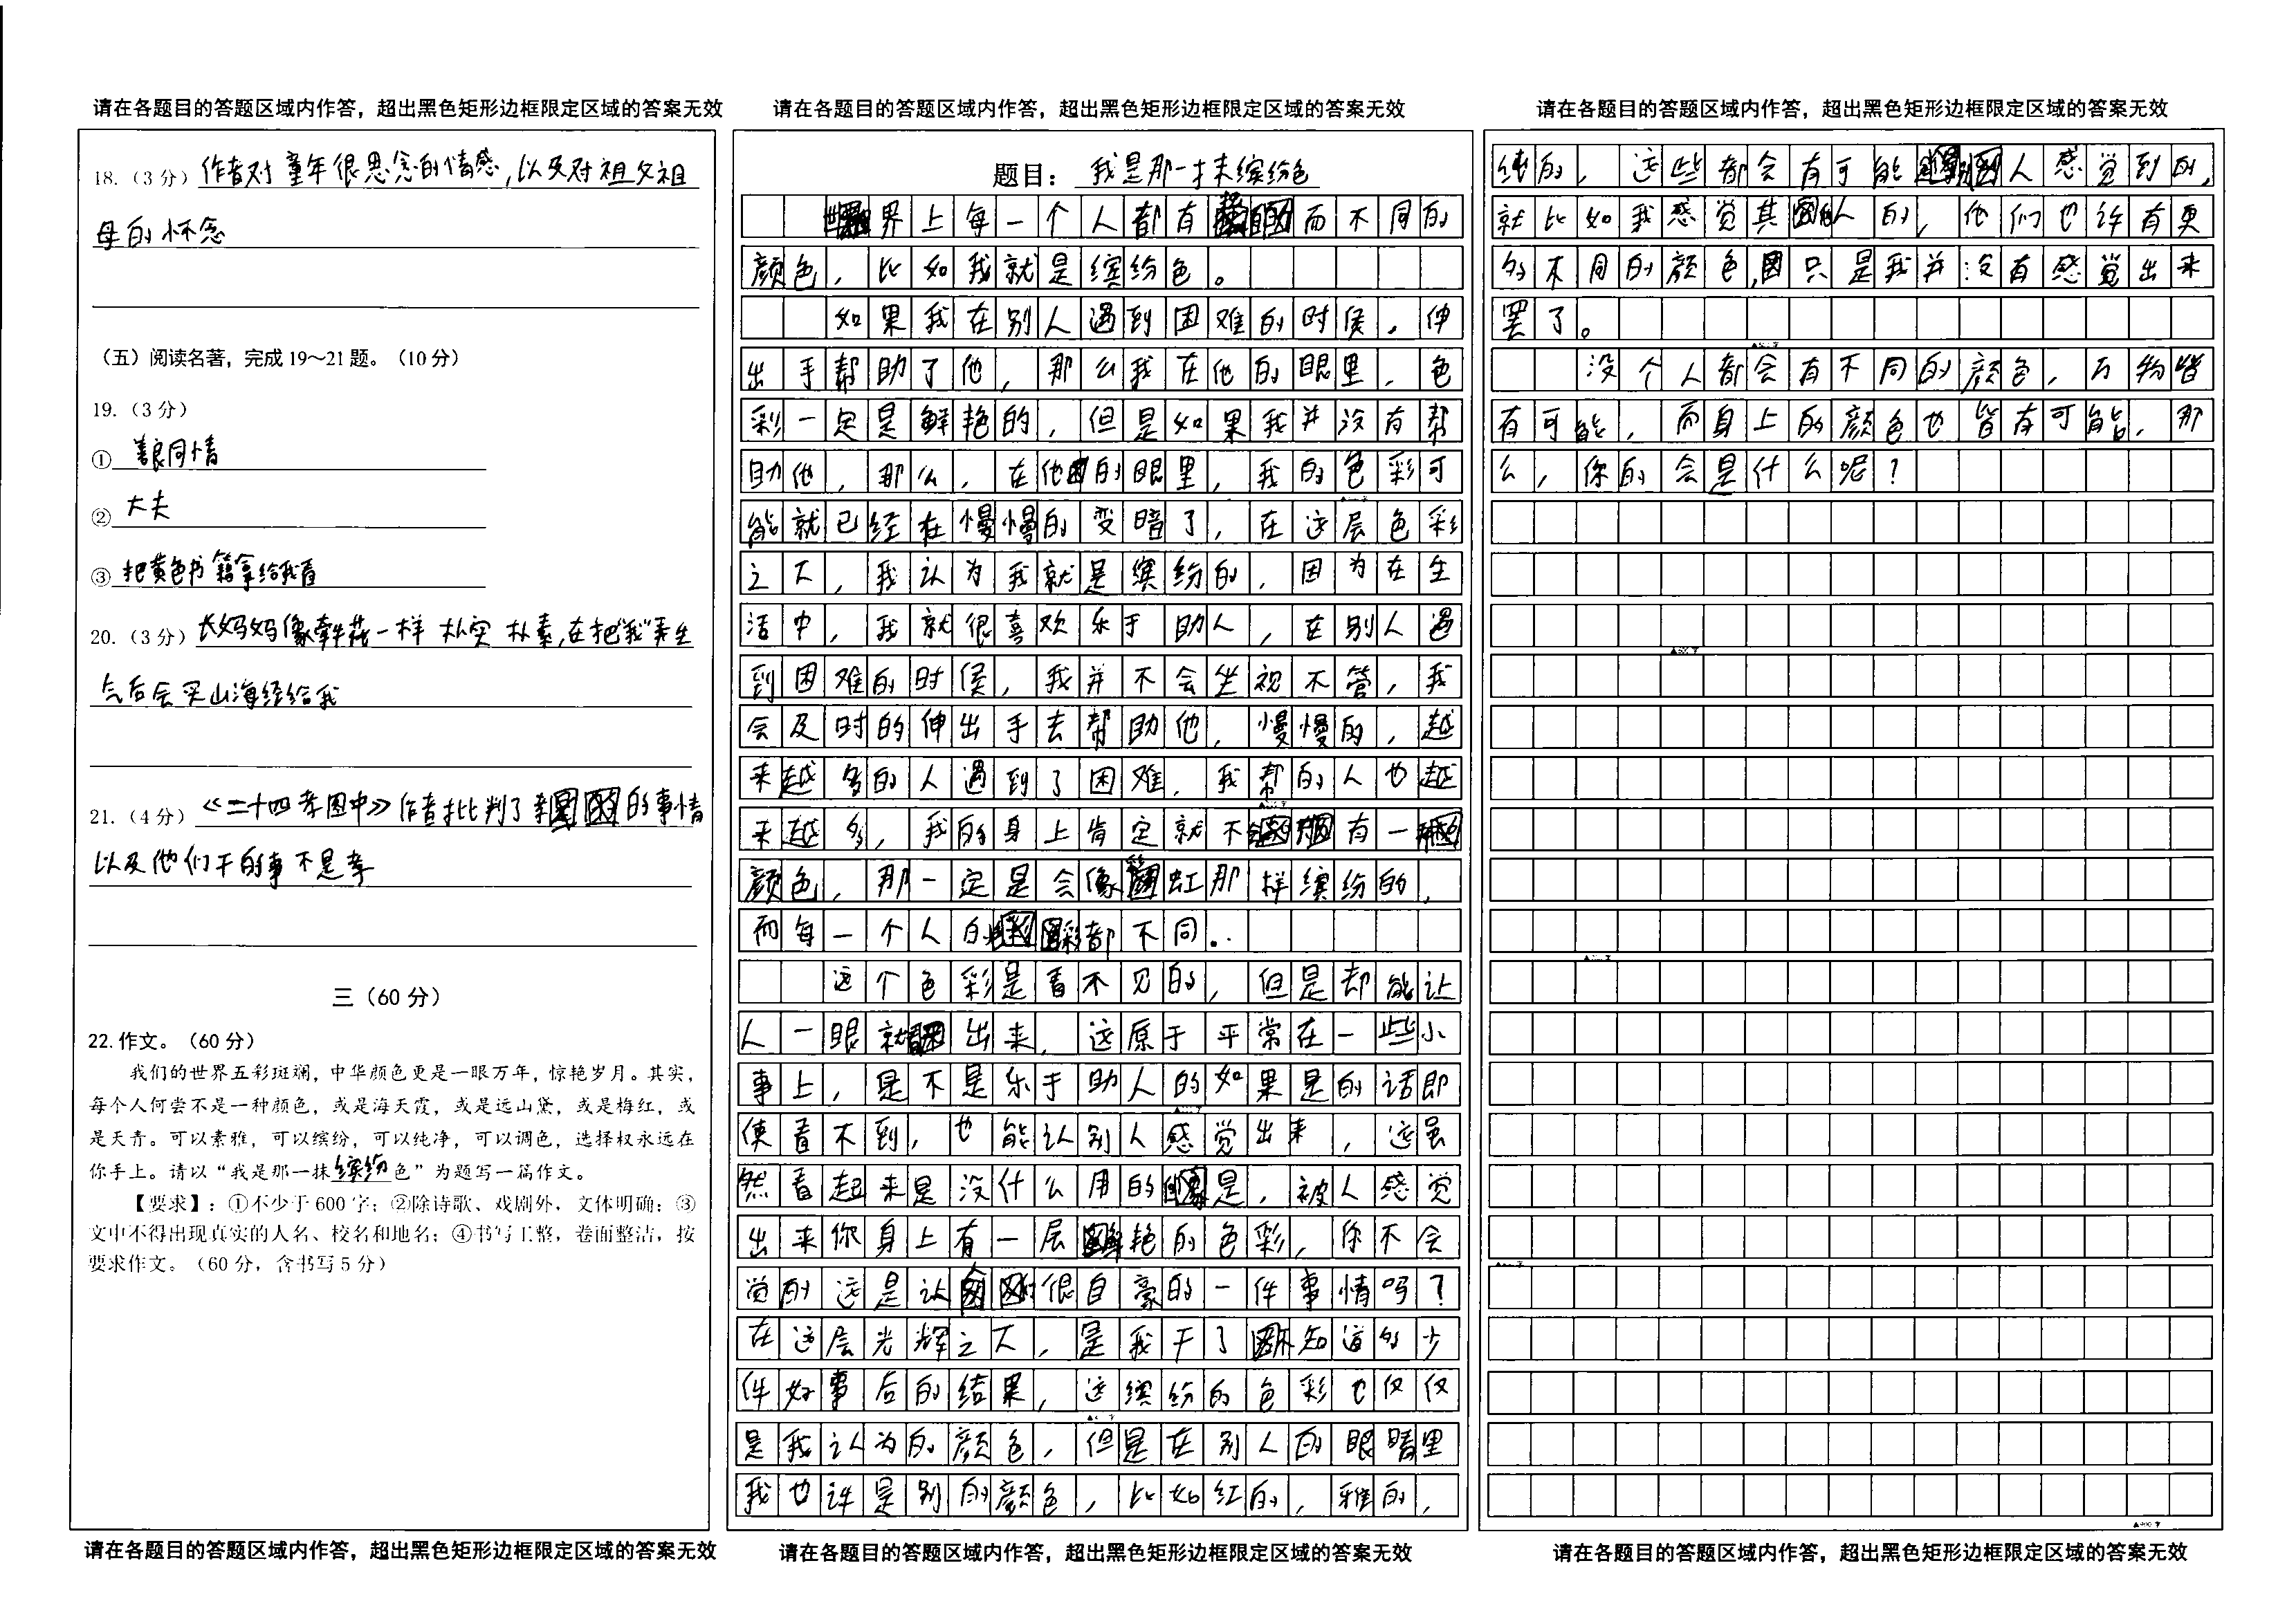 请在各题目的答题区域内作答，超出黑色矩形边框限定区域的答案无效
18.（3分）作者对童年很思念的情感，以及对祖父祖
母的怀念
（五）阅读名著，完成19～21题。（10分）
19.（3分）
① 善良同情
② 大夫
③ 把黄色书籍拿给我看
20.（3分）长妈妈像牵牛花一样 朴实 朴素，在把“我”弄生
气后会买山海经给我
21.（4分）《二十四孝图中》作者批判了的事情
以及他们干的事不是孝
三（60分）
22.作文。（60分）
我们的世界五彩斑斓，中华颜色更是一眼万年，惊艳岁月。其实，
每个人何尝不是一种颜色，或是海天霞，或是远山黛，或是梅红，或
是天青。可以素雅，可以缤纷，可以纯净，可以调色，选择权永远在
你手上。请以“我是那一抹缤纷色”为题写一篇作文。
【要求】：①不少于600字；②除诗歌、戏剧外，文体明确；③
文中不得出现真实的人名、校名和地名；④书写工整，卷面整洁，按
要求作文。（60分，含书写5分）
请在各题目的答题区域内作答，超出黑色矩形边框限定区域的答案无效
请在各题目的答题区域内作答，超出黑色矩形边框限定区域的答案无效
题目：我是那一抹缤纷色
世界上每一个人都有而不同的
颜色，比如我就是缤纷色。
如果我在别人遇到困难的时侯，伸
出手帮助了他，那么我在他的眼里，色
彩一定是鲜艳的，但是如果我并没有帮
助他，那么，在他的眼里，我的色彩可
能就已经在慢慢的变暗了，在这层色彩
之下，我认为我就是缤纷的，因为在生
活中，我就很喜欢乐于助人，在别人遇
到困难的时侯，我并不会坐视不管，我
会及时的伸出手去帮助他，慢慢的，越
来越多的人遇到了困难，我帮的人也越
来越多，我的身上肯定就不有一
颜色，那一定是会像虹那样缤纷的，
而每一个人的彩都不同。
这个色彩是看不见的，但是却能让
人一眼就看出来，这原于平常在一些小
事上，是不是乐于助人的如果是的话即
使看不到，也能让别人感觉出来，这虽
然看起来是没什么用的但是，被人感觉
出来你身上有一层鲜艳的色彩，你不会
觉的这是让很自豪的一件事情吗？
在这层光辉之下，是我干了不知道多少
件好事后的结果，这缤纷的色彩也仅仅
是我认为的颜色，但是在别人的眼睛里
我也许是别的颜色，比如红的，雅的，
请在各题目的答题区域内作答，超出黑色矩形边框限定区域的答案无效
请在各题目的答题区域内作答，超出黑色矩形边框限定区域的答案无效
纯的，这些都会有可能人感觉到的，
就比如我感觉其人的，他们也许有更
多不同的颜色，只是我并没有感觉出来
罢了。
没个人都会有不同的颜色，万物皆
有可能，而身上的颜色也皆有可能，那
么，你的会是什么呢？
请在各题目的答题区域内作答，超出黑色矩形边框限定区域的答案无效